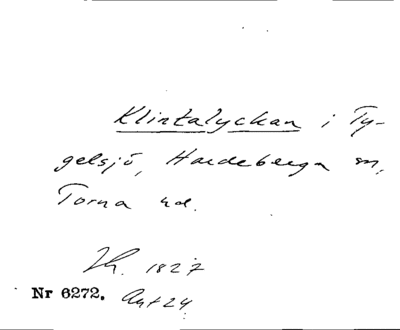 Klintalyckan i Ty-
gelsjö, Hardeberga sn,
Torna hd.
Lh. 1827
Nr 6272. Akt 24